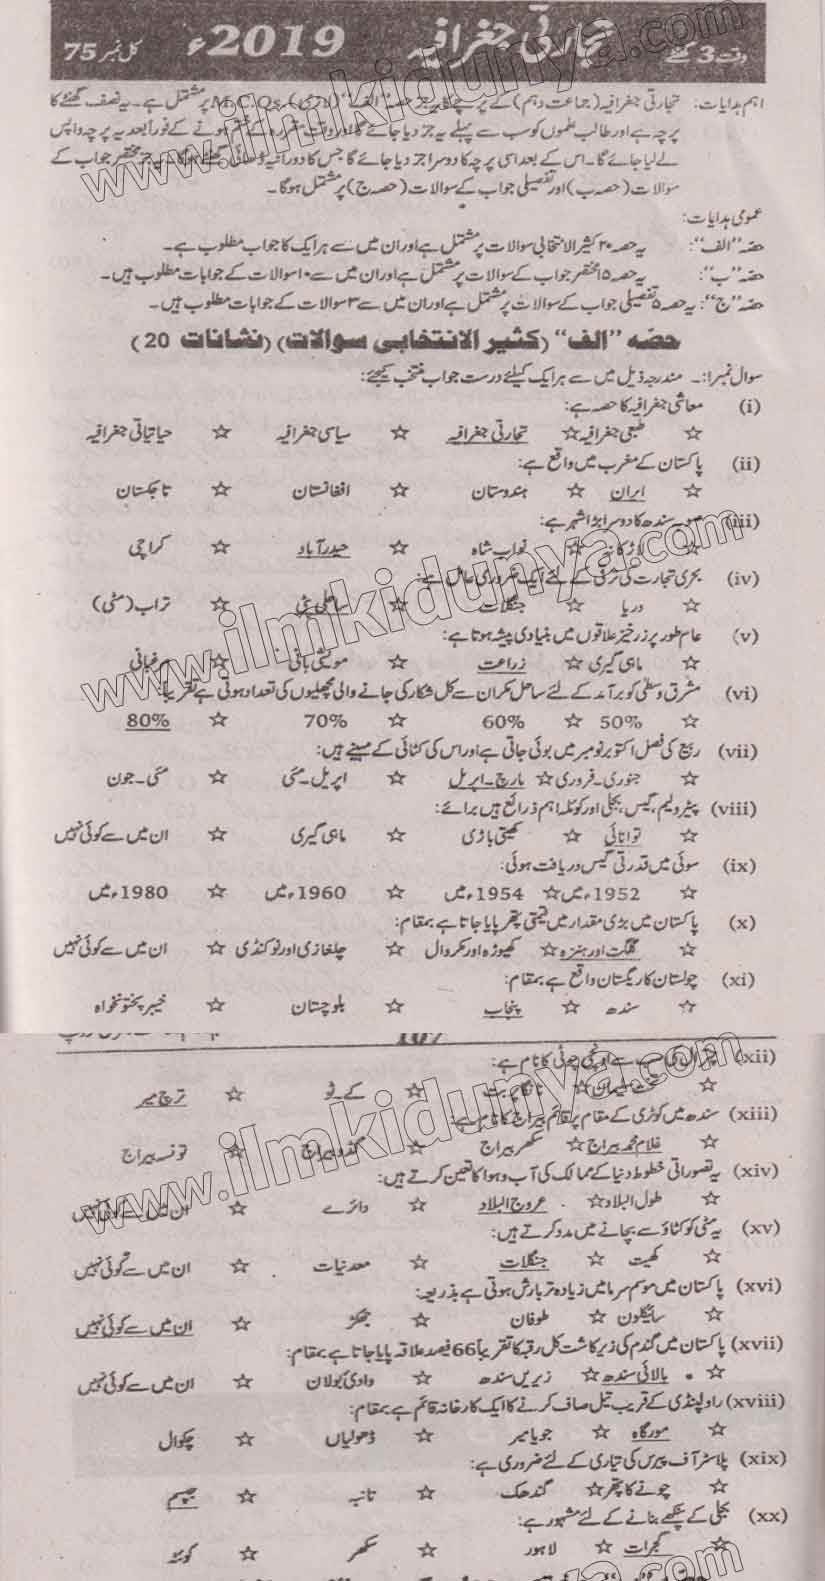 وقت 3 گھنٹے تجارتی جغرافیہ 2019ء کل نمبر 75
اہم ہدایات: تجارتی جغرافیہ (جماعت دہم) کے پرچے کا پہلا جز حصہ "الف" (لازمی) M.C.Qs پر مشتمل ہے۔ یہ نصف گھنٹے کا
پرچہ ہے اور طالب علموں کو سب سے پہلے یہ جز دیا جائے گا اور وقت مقررہ کے ختم ہونے کے فوراً بعد یہ پرچہ واپس
لے لیا جائے گا۔ اس کے بعد اسی پرچہ کا دوسرا جز دیا جائے گا جس کا دورانیہ ڈھائی گھنٹے ہوگا۔ یہ جز مختصر جواب کے
سوالات (حصہ ب) اور تفصیلی جواب کے سوالات (حصہ ج) پر مشتمل ہوگا۔
عمومی ہدایات:
حصہ "الف": یہ حصہ ۲۰ کثیر الانتخابی سوالات پر مشتمل ہے اور ان میں سے ہر ایک کا جواب مطلوب ہے۔
حصہ "ب": یہ حصہ ۱۵ مختصر جواب کے سوالات پر مشتمل ہے اور ان میں سے ۱۰ سوالات کے جوابات مطلوب ہیں۔
حصہ "ج": یہ حصہ ۵ تفصیلی جواب کے سوالات پر مشتمل ہے اور ان میں سے ۳ سوالات کے جوابات مطلوب ہیں۔
حصّہ "الف" (کثیر الانتخابی سوالات) (نشانات 20)
سوال نمبر۱:۔ مندرجہ ذیل میں سے ہر ایک کیلئے درست جواب منتخب کیجئے:
(i) معاشی جغرافیہ کا حصہ ہے:
☆ طبعی جغرافیہ ☆ تجارتی جغرافیہ ☆ سیاسی جغرافیہ ☆ حیاتیاتی جغرافیہ
(ii) پاکستان کے مغرب میں واقع ہے:
☆ ایران ☆ ہندوستان ☆ افغانستان ☆ تاجکستان
(iii) صوبہ سندھ کا دوسرا بڑا شہر ہے:
☆ لاڑکانہ ☆ نواب شاہ ☆ حیدرآباد ☆ کراچی
(iv) بحری تجارت کی ترقی کے لئے ایک ضروری عامل ہے:
☆ دریا ☆ جنگلات ☆ ساحلی پٹی ☆ تراب (مٹی)
(v) عام طور پر زرخیز علاقوں میں بنیادی پیشہ ہوتا ہے:
☆ ماہی گیری ☆ زراعت ☆ مویشی بانی ☆ مرغبانی
(vi) مشرق وسطیٰ کو برآمد کے لئے ساحل مکران سے کل شکار کی جانے والی مچھلیوں کی تعداد ہوتی ہے تقریباً:
☆ 50% ☆ 60% ☆ 70% ☆ 80%
(vii) ربیع کی فصل اکتوبر نومبر میں بوئی جاتی ہے اور اس کی کٹائی کے مہینے ہیں:
☆ جنوری۔فروری ☆ مارچ۔اپریل ☆ اپریل۔مئی ☆ مئی۔جون
(viii) پیٹرولیم، گیس، بجلی اور کوئلہ اہم ذرائع ہیں برائے:
☆ توانائی ☆ کھیتی باڑی ☆ ماہی گیری ☆ ان میں سے کوئی نہیں
(ix) سوئی میں قدرتی گیس دریافت ہوئی:
☆ 1952ء میں ☆ 1954ء میں ☆ 1960ء میں ☆ 1980ء میں
(x) پاکستان میں بڑی مقدار میں قیمتی پتھر پایا جاتا ہے بمقام:
☆ گلگت اور ہنزہ ☆ کھیوڑہ اور مکروال ☆ چلغازی اور نوکنڈی ☆ ان میں سے کوئی نہیں
(xi) چولستان کا ریگستان واقع ہے بمقام:
☆ سندھ ☆ پنجاب ☆ بلوچستان ☆ خیبر پختونخواہ
107
(xii) چترال کی سب سے اونچی چوٹی کا نام ہے:
☆ تخت سلیمان ☆ نانگا پربت ☆ کے ٹو ☆ ترچ میر
(xiii) سندھ میں کوٹری کے مقام پر قائم بیراج کا نام ہے:
☆ غلام محمد بیراج ☆ سکھر بیراج ☆ گدو بیراج ☆ تونسہ بیراج
(xiv) یہ تصوراتی خطوط دنیا کے ممالک کی آب و ہوا کا تعین کرتے ہیں:
☆ طول البلاد ☆ عروج البلاد ☆ دائرے ☆ ان میں سے کوئی نہیں
(xv) یہ مٹی کو کٹاؤ سے بچانے میں مدد کرتے ہیں:
☆ کھیت ☆ جنگلات ☆ معدنیات ☆ ان میں سے کوئی نہیں
(xvi) پاکستان میں موسم سرما میں زیادہ تر بارش ہوتی ہے بذریعہ:
☆ سائیکلون ☆ طوفان ☆ جھکڑ ☆ ان میں سے کوئی نہیں
(xvii) پاکستان میں گندم کی زیر کاشت کل رقبہ کا تقریباً 66 فیصد علاقہ پایا جاتا ہے بمقام:
☆ بالائی سندھ ☆ زیریں سندھ ☆ وادئ بولان ☆ ان میں سے کوئی نہیں
(xviii) راولپنڈی کے قریب تیل صاف کرنے کا ایک کارخانہ قائم ہے بمقام:
☆ مورگاہ ☆ جویامیر ☆ ڈھولیاں ☆ چکوال
(xix) پلاسٹر آف پیرس کی تیاری کے لئے ضروری ہے:
☆ چونے کا پتھر ☆ گندھک ☆ تانبہ ☆ جپسم
(xx) بجلی کے پنکھے بنانے کے لئے مشہور ہے:
☆ گجرات ☆ لاہور ☆ سکھر ☆ کوئٹہ
www.ilmkidunya.com
www.ilmkidunya.com
www.ilmkidunya.com